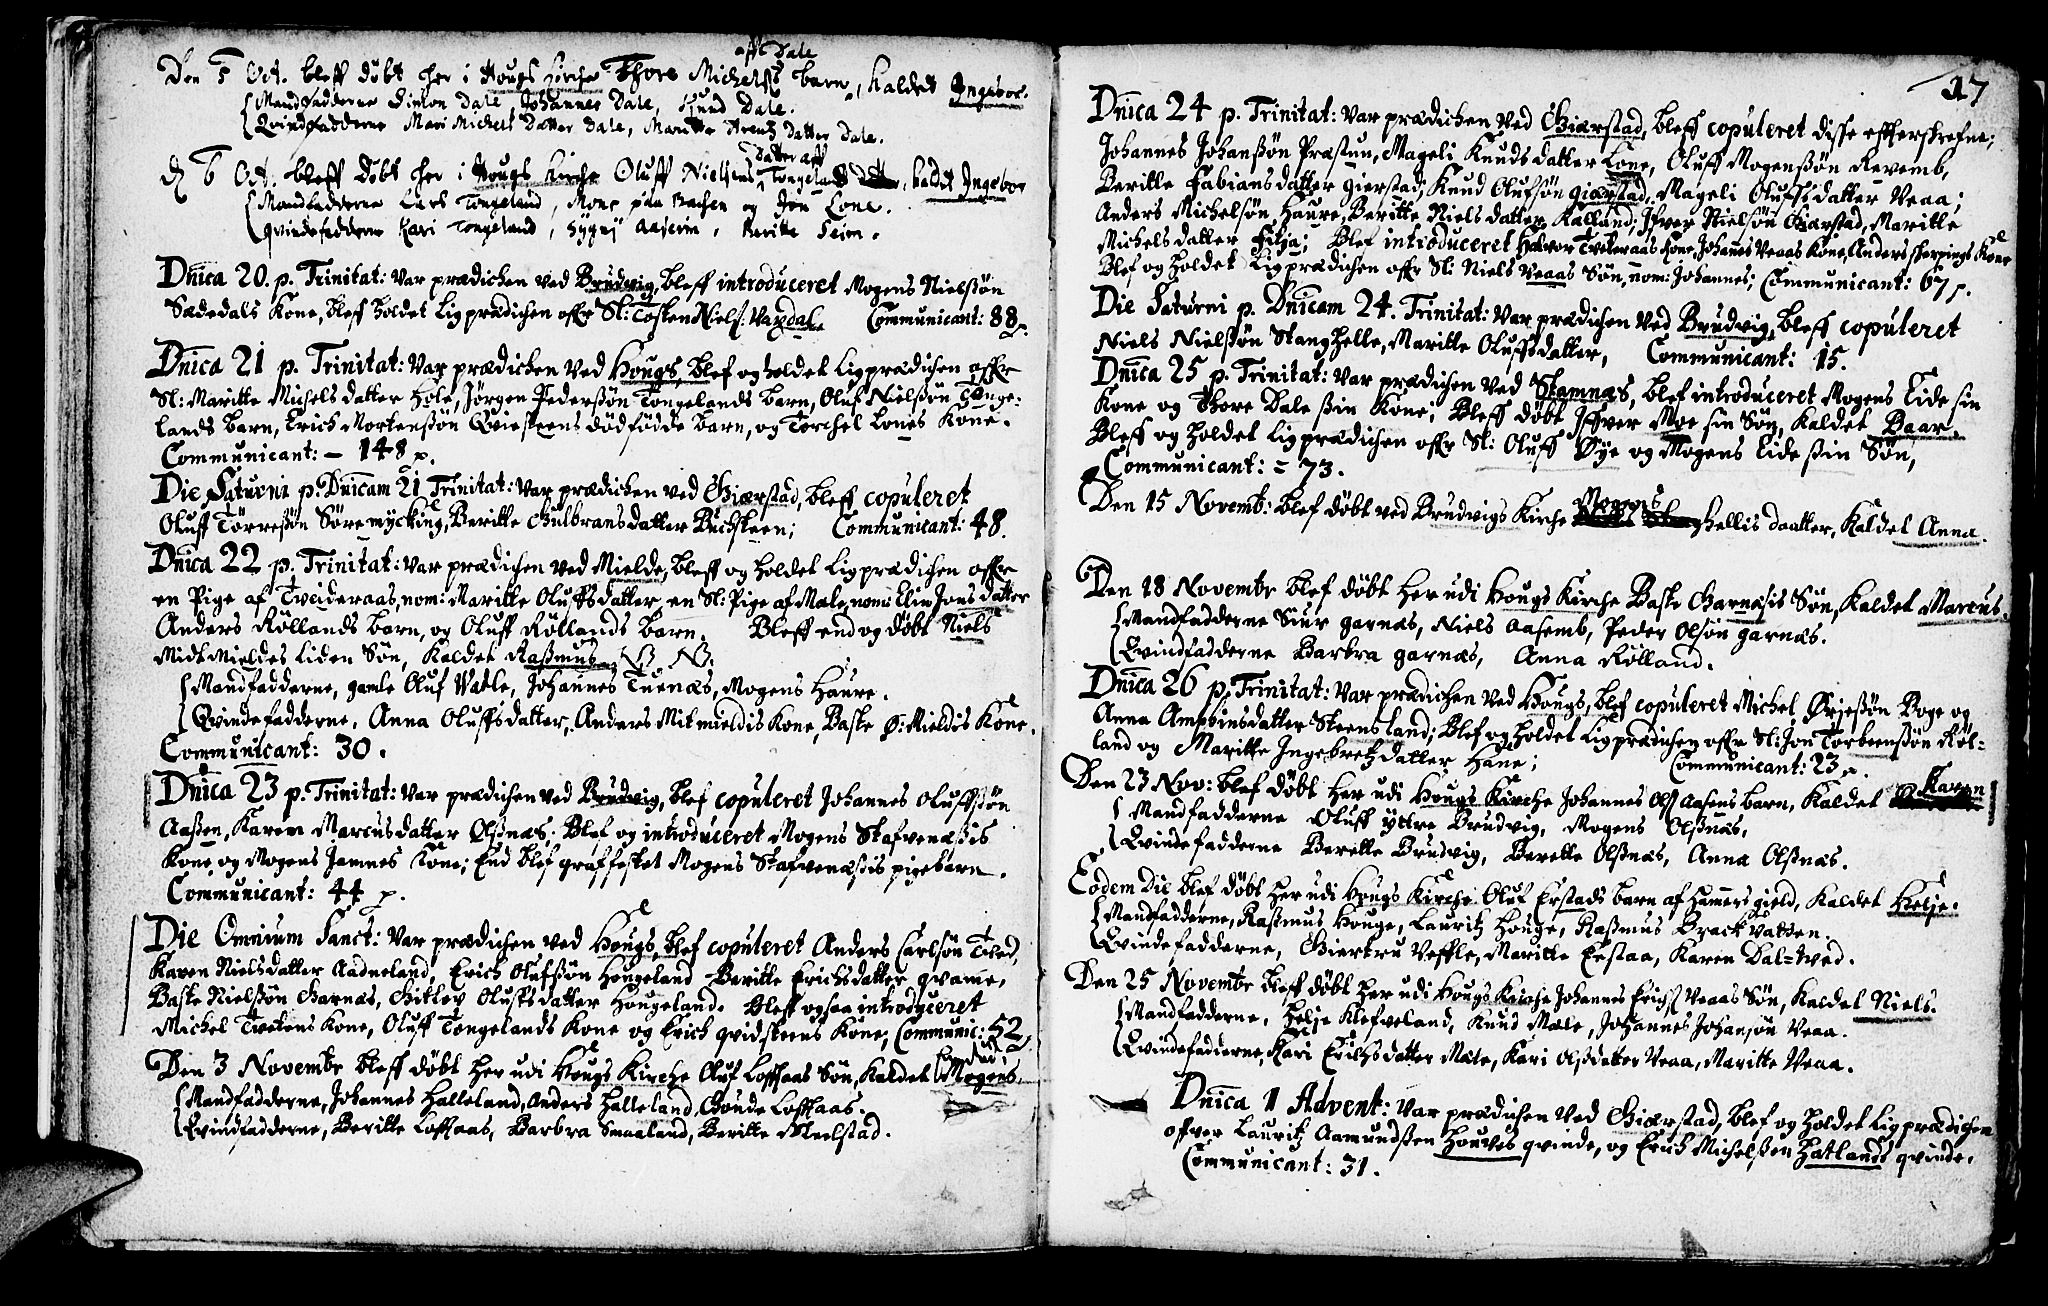 aff Dale
Den 5 Oct. bleff døbt her i Hougs Kirche Thore Michelss barn, kaldet Ingebor.
Mandfadderne Simon Dale, Johannes Dale, Knud Dale.
Qvindfadderne Mari Michels Datter Dale, Maritte Datter Dale.
Datter aff
6 Oct. bleff døbt her i Hougs Kirche Oluff Nielsens Tongeland, kaldet Ingebor
Mandfadderne Lars Tongeland, Mons paa og Jon Lone.
qvindefadderne Kari Tongeland, Sygni Aaserin, Beritte Seim.
Dnica 20. p. Trinitat: Var prædichen ved Brudvig, bleff introduceret Mogens Nielssøn
Sædedals Kone, bleff holdet Ligprædichen offr Sl: Tosten Niels: Vaxdal. Communicant: 88 p.
Dnica 21 p. Trinitat: Var prædichen ved Hougs, blef og holdet Ligprædichen offr
Sl: Maritte Michelsdatter Hole, Jørgen Pederssøn Tongelands barn, Oluf Nielssøn Tonge:
lands barn, Erich Mortenssøn Qviesteens dødfødde barn, og Torchel Lones Kone.
Communicant: – 148 p.
Die Saturni p. Dnicam 21 Trinitat: Var prædichen ved Giærstad, bleff copuleret
Oluff Tørressøn Søremycking, Beritte Gulbransdatter Buchsteen; Communicant: 48.
Dnica 22 p. Trinitat: Var prædichen ved Mielde, bleff og holdet Ligprædichen offr
en Pige af Tveideraas, nom: Maritte Oluffsdatter, en Sl: Pige af Mæle, nom: Elin Jonsdatter
Anders Røllands barn, og Oluff Røllands barn. Bleff end og døbt Niels
Midt Mieldes liden Søn, kaldet Rasmus NB. NB.
Mandfadderne, gamle Oluf Watle, Johannes Tuenæs, Mogens Haure.
Qvindefadderne, Anna Oluffsdatter, Anders Mitmieldis Kone, Baste Ø: Mieldis Kone.
Communicant: 30.
Dnica 23 p. Trinitat: Var prædichen ved Brudvig, blef copuleret Johannes Oluffssøn
Aassen, Karen Marcusdatter Olsnæs. Blef og introduceret Mogens Stafvenæssis
Kone og Mogens Jamnes Kone; End blef graffestet Mogens Stafvenæssis pigebarn.
Communicant: 44 p.
Die Omnium Sanct: Var prædichen ved Hougs, blef copuleret Anders Carlsøn Tved,
Karen Nielsdatter Aadneland, Erich Olufssøn Hougeland Beritte Erichsdatter qvame,
Baste Nielssøn Garnæs, Gitlov Oluffsdatter Hougeland. Bleff ogsaa introduceret
Michel Tveitens Kone, Oluff Tongelands Kone og Erich qvidsteens Kone, Communic: 52
Den 3 Novembr bleff døbt her udi Hougs Kirche Oluf Lofthaas Søn, kaldet Mogens
Mandfadderne, Johannes Halleland, Anders Halleland, Goude Lofthaas.
Qvindfadderne, Beritte Lofthaas, Barbra Smaaland, Beritte Mielstad.
17
Dnica 24 p. Trinitat: Var prædichen ved Giærstad, bleff copuleret disse effterskrefne;
Johannes Johanssøn Præstun, Mageli Knudsdatter Lone, Oluff Mogenssøn Revemb,
Beritte Fabiansdatter Gierstad; Knud Olufsøn Giærstad, Mageli Oluffsdatter Veaa;
Anders Michelsøn Haure, Beritte Nielsdatter Kalland; Ifver Nielsøn Giærstad, Maritte
Michelsdatter Fitja; Blef introduceret Halvor Tveteraas Kone, Johannes Veaas Kone, Anders Skerpings Kone
Blef og holdet Ligprædichen offr Sl: Niels Veaas Søn, nom: Johannes; Communicant: 67 p.
Die Saturni p. Dnicam 24. Trinitat: Var prædichen ved Brudvig, bleff copuleret
Niels Nielssøn Stanghelle, Maritte Oluffsdatter, Communicant: 15.
Dnica 25 p. Trinitat: Var prædichen ved Stamnæs, blef introduceret Mogens Eide sin
Kone og Thore Dale ssin Kone; Bleff døbt Iffver Moe sin Søn, kaldet Baar.
Bleff og holdet Ligprædichen offr Sl: Oluff Øye og Mogens Eide ssin Søn,
Communicant: = 73.
Mogens
Den 15 Novemb: blef døbt ved Brudvigs Kirche hellis daatter, kaldet Anna.
Den 18 Novembr blef døbt her udi Hougs Kirche Baste Garnæsis Søn, kaldet Marcus.
Mandfadderne Siur garnæs, Niels Aasemb, Peder Olsøn garnæs.
Qvindfadderne Barbra garnæs, Anna Rølland.
Dnica 26 p. Trinitat: Var prædichen ved Hougs, blef copuleret Michel Ørjessøn Boge og
Anna Ampvinsdatter Steensland; Blef og holdet Ligprædichen offr Sl: Jon Torbernssøn Røl=
land og Maritte Ingebretzdatter Hane; Communicant: 23 p.
Den 23 Nov: blef døbt her udi Hougs Kirche Johannes Ols Aasens barn, kaldet Karen
Mandfadderne Oluff yttre Brudvig, Mogens Olssnæs,
Qvindefadderne Berette Brudvig, Berette Olssnæs, Anna Olssnæs.
Eodem Die blef døbt her udi Hougs Kirche Oluf Erstads barn af Hamers gield, kaldet Helje.
Mandfadderne, Rasmus Houge, Lauritz Houge, Rasmus Brackvatten.
Qvindefadderne, Giertru Veffle, Maritte Erstaa, Karen Dal=tved.
Den 25 Novembr bleff døbt her udi Hougs Kirche Johannes Erichs Veaas Søn, kaldet Niels.
Mandfadderne, Helje Klefveland, Knud Mæle, Johannes Johansøn Veaa.
Qvindefadderne, Kari Erichsdatter Mæle, Kari Olsdatter Veaa, Maritte Veaa.
Dnica 1 Advent: Var prædichen ved Giærstad, blef og holdet Ligprædichen
offver Lauritz Aamundssen Houves qvinde, og Erich Michelssen Hatlands qvinde,
Communicant: 31.